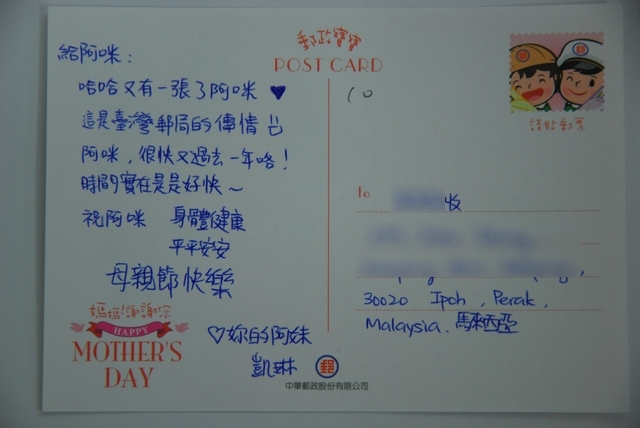 給阿咪：
哈哈又有一張了阿咪♥
這是臺灣郵局的傳情
阿咪，很快又過去一年咯！
時間實在是是好快～
祝阿咪 身體健康
平平安安
母親節快樂
♡妳的阿妹
凱琳
媽媽!謝謝你
HAPPY
MOTHER'S
DAY
郵政寶寶
POST CARD
請貼郵票
to
收
30020 Ipoh, Perak,
Malaysia. 馬來西亞
郵
中華郵政股份有限公司